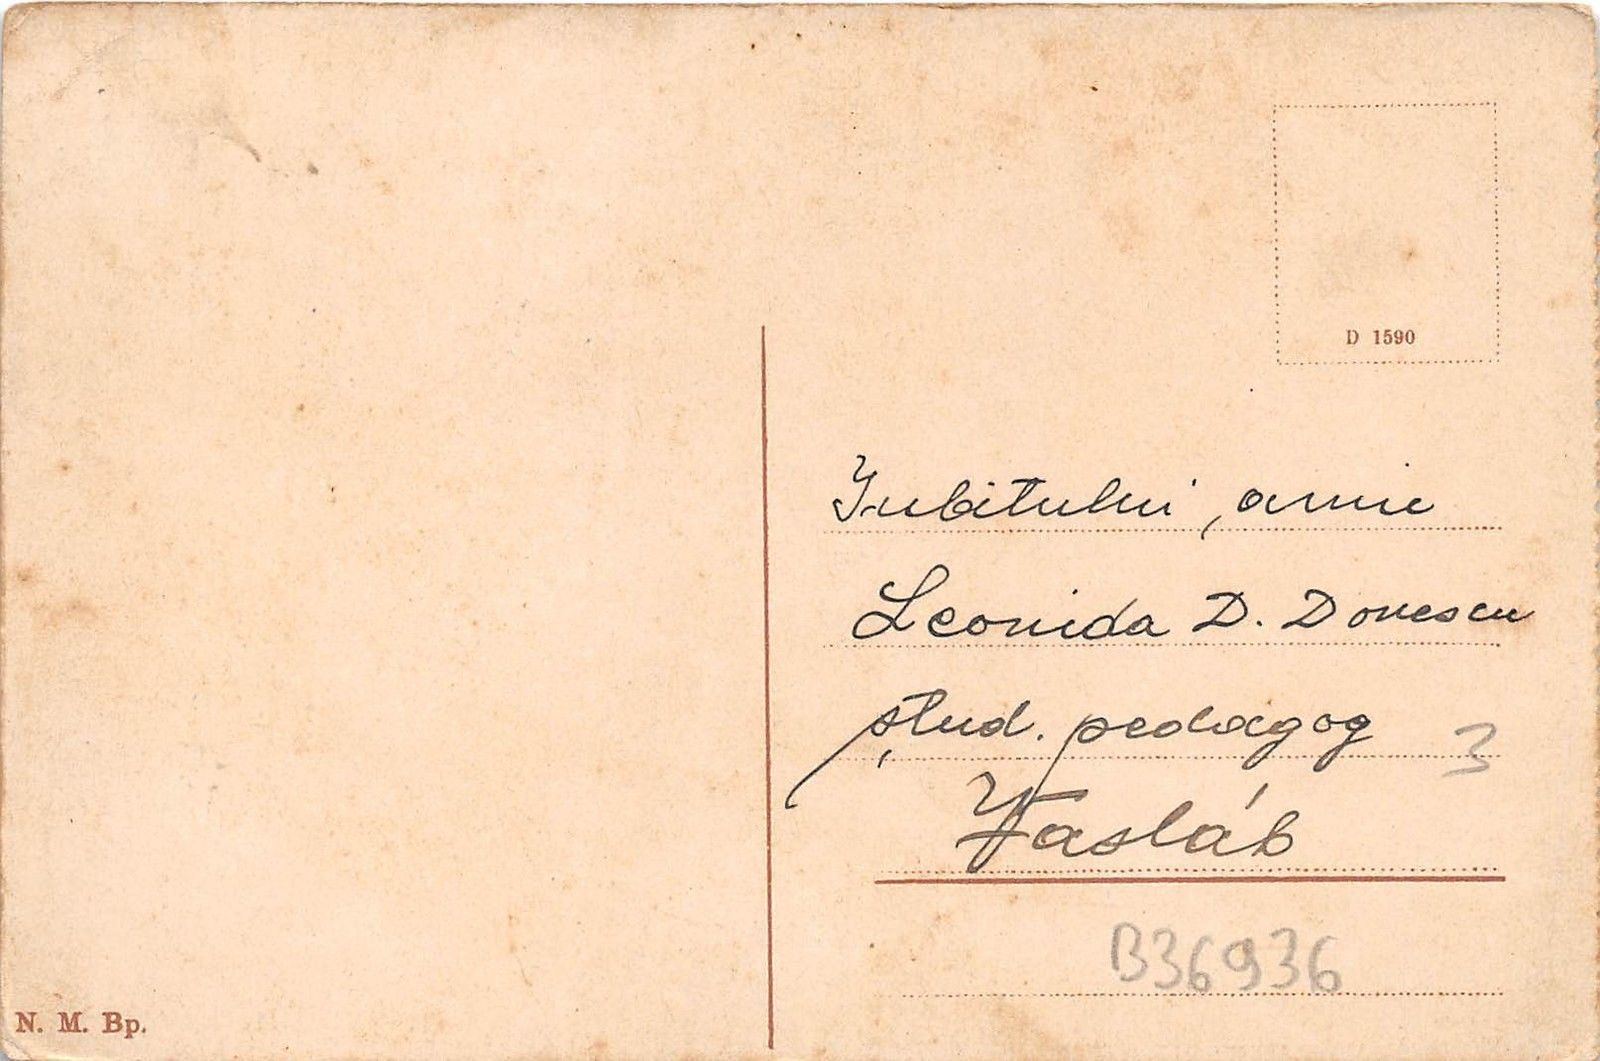 D 1590
Iubitului, amic
Leonida D. Donescu
stud. pedagog
3
Vasláb
B36936
N. M. Bp.